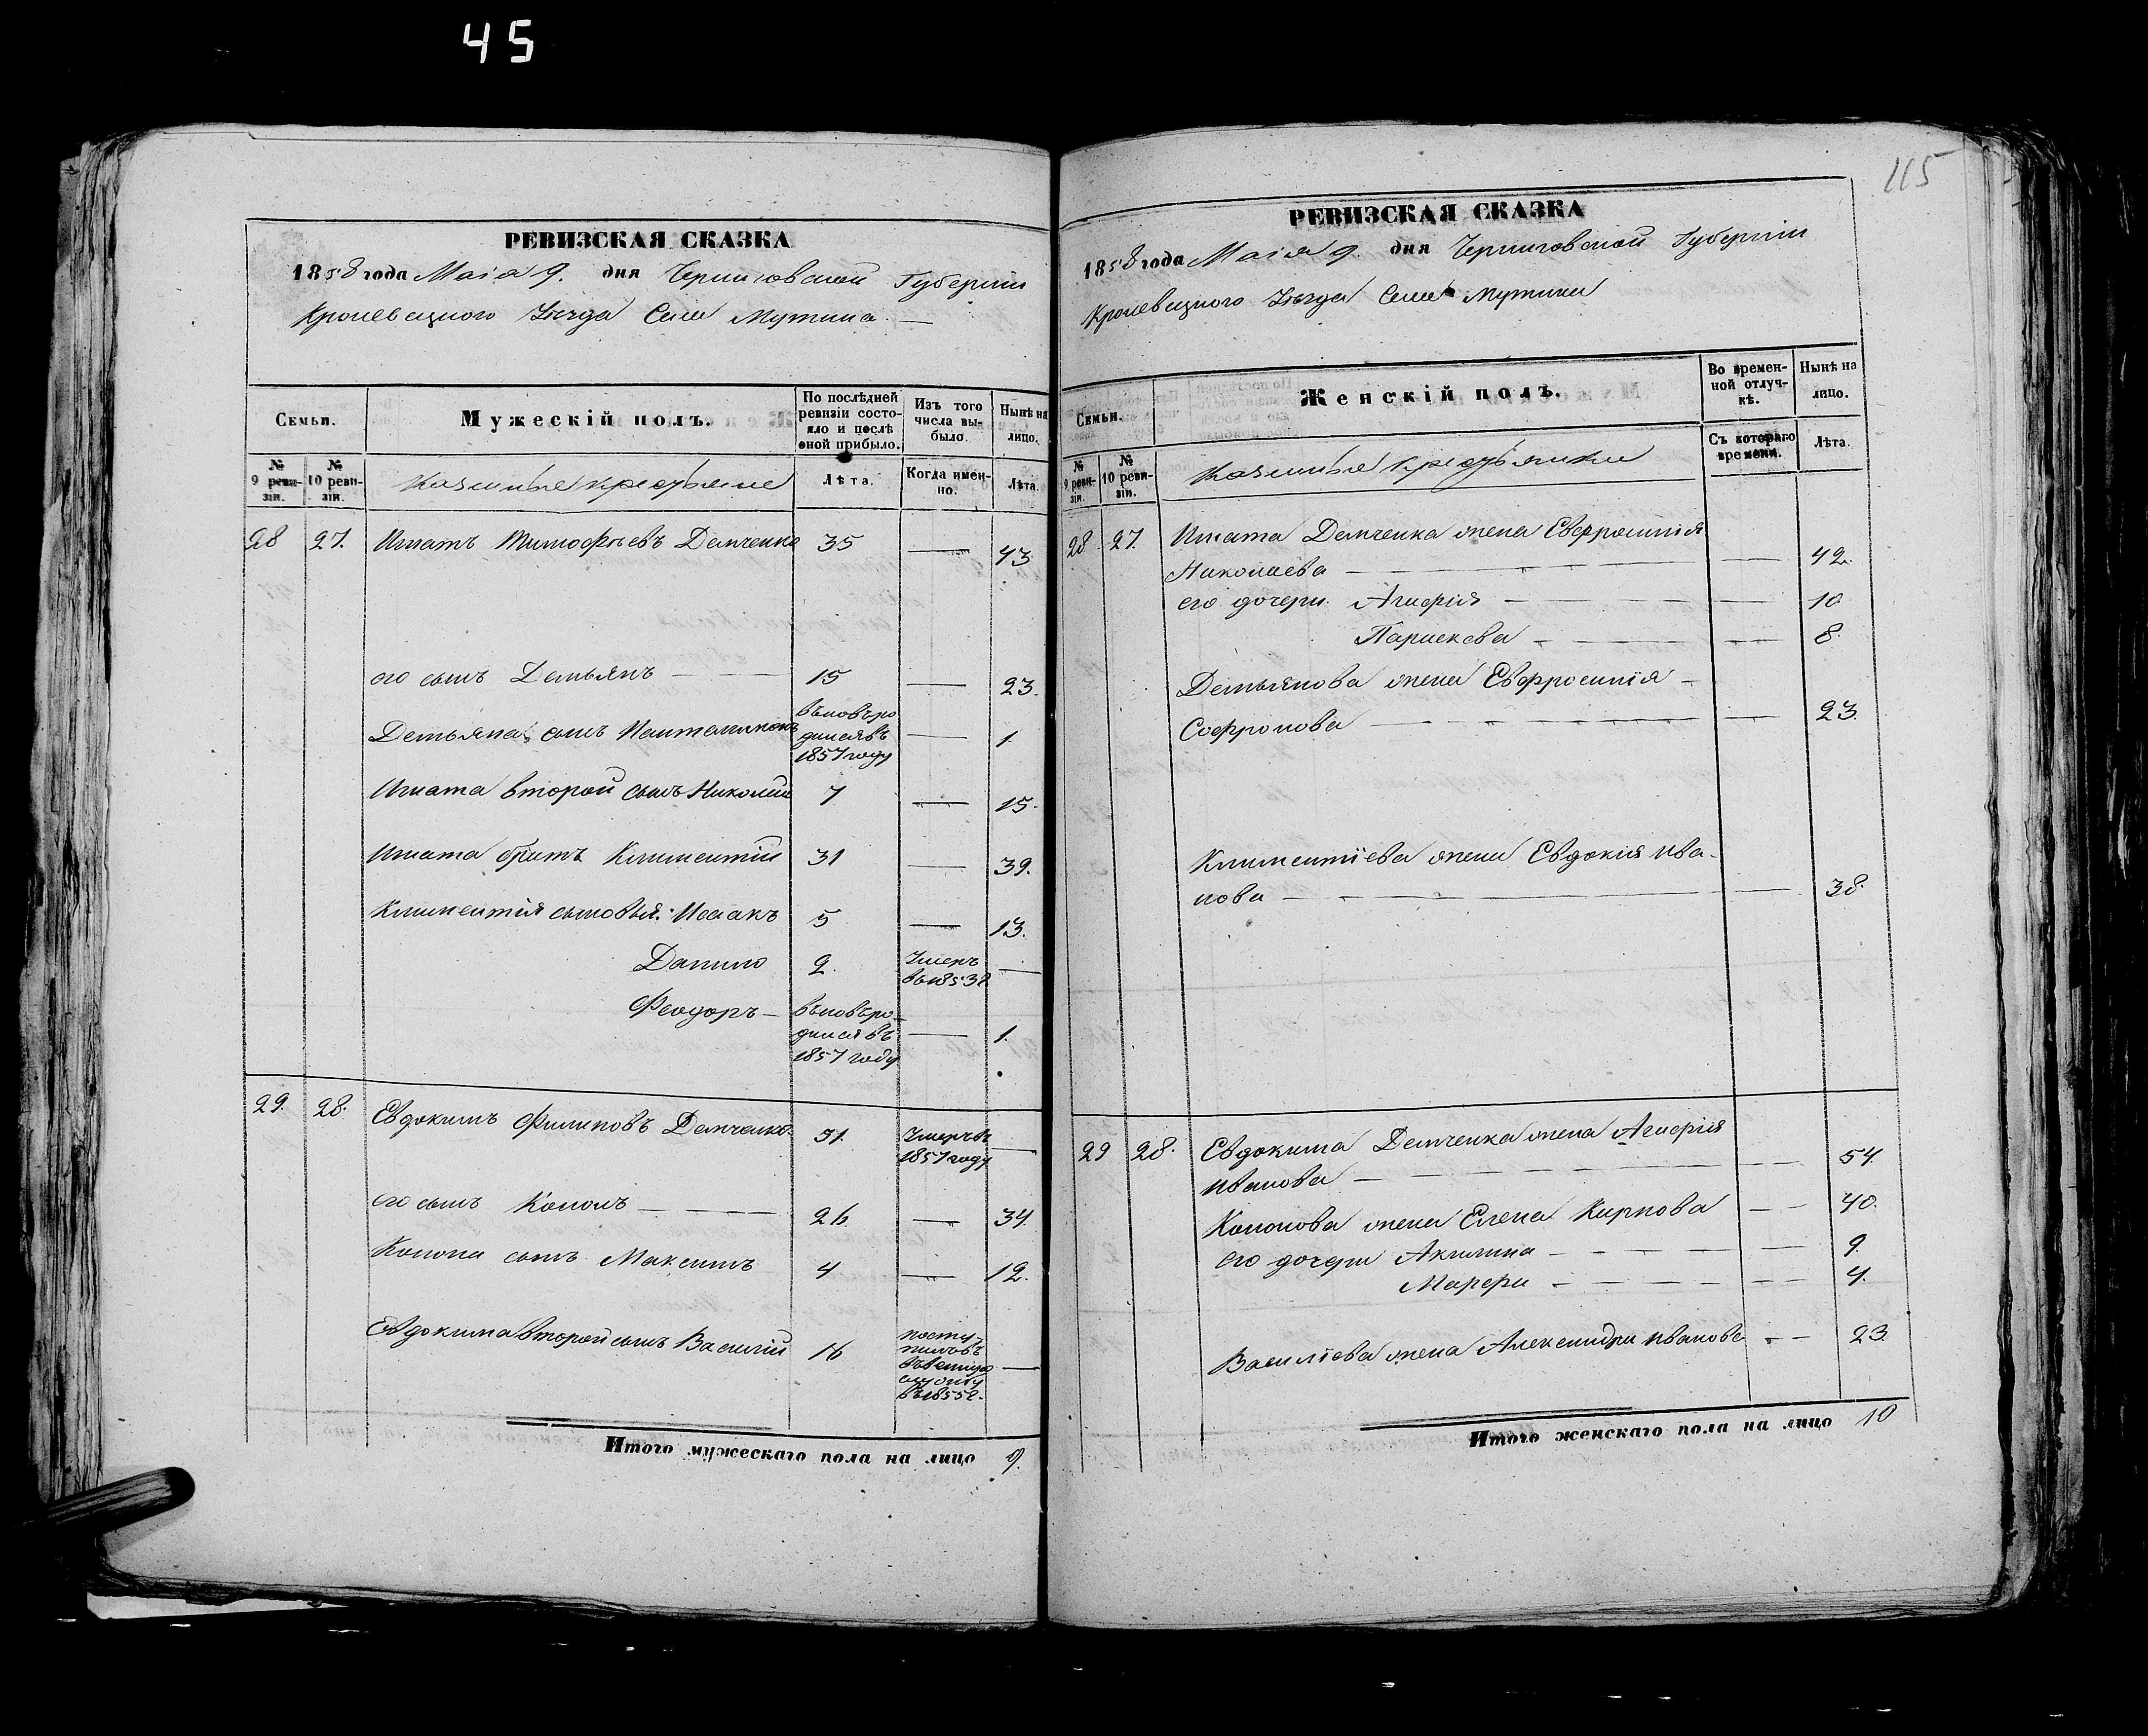 45
РЕВИЗСКАЯ СКАЗКА
1858 года Маія 9. дня Черниговской Губерніи
Кролевецкого Уѣзда Села Мутина
Семьи.
Мужескій полъ.
По послѣдней ревизіи состояло и послѣ оной прибыло.
Изъ того числа выбыло.
Нынѣ на лицо.
№ 9 ревизіи.
№ 10 ревизіи.
Казенные крестьяне
Лѣта.
Когда именно.
Лѣта.
28 27. Игнатъ Тимофѣевъ Демченко 35 — 43
его сынъ Демьянъ — 15 — 23.
Демьяна сынъ Пантелимонъ въновьро
дился въ — 1.
1857 году
Игната второй сынъ Николай 7 — 15.
Игната братъ Климентій 31 — 39.
Климентія сыновья: Исаакъ 5 — 13.
Данило 2. Умеръ —
въ 1853 г.
Феодоръ — въновьро
дился въ — 1.
1857 году
29. 28. Евдокимъ Филиповъ Демченко 51. Умеръ въ —
1857 году
его сынъ Кононъ — 26. — 34.
Конона сынъ Максимъ 4 — 12.
Евдокима второй сынъ Василій 16 посту
службу
въ 1855 г.
Итого мужескаго пола на лицо 9.
115
РЕВИЗСКАЯ СКАЗКА
1858 года Маія 9. дня Черниговской Губерніи
Кролевецкого Уѣзда Села Мутина
Семьи.
Женскій полъ.
Во временной отлучкѣ.
Нынѣ на лицо.
№ 9 ревизіи.
№ 10 ревизіи.
Казенные крестьянки
Съ котораго времени.
Лѣта.
28. 27. Игната Демченка жена Евфросинія
Николаева — — 42.
его дочери. Агафія — — 10
Параскева — — 8.
Демьянова жена Евфросинія —
Софронова — — 23.
Климентіева жена Евдокія Ива-
нова — — 38.
29 28. Евдокима Демченка жена Агафія
Иванова — — 54.
Кононова жена Елена Карпова — 40.
его дочери Акилина — — 9.
Марфа — — 4.
Василіева жена Александра Иванова — 23.
Итого женскаго пола на лицо 10